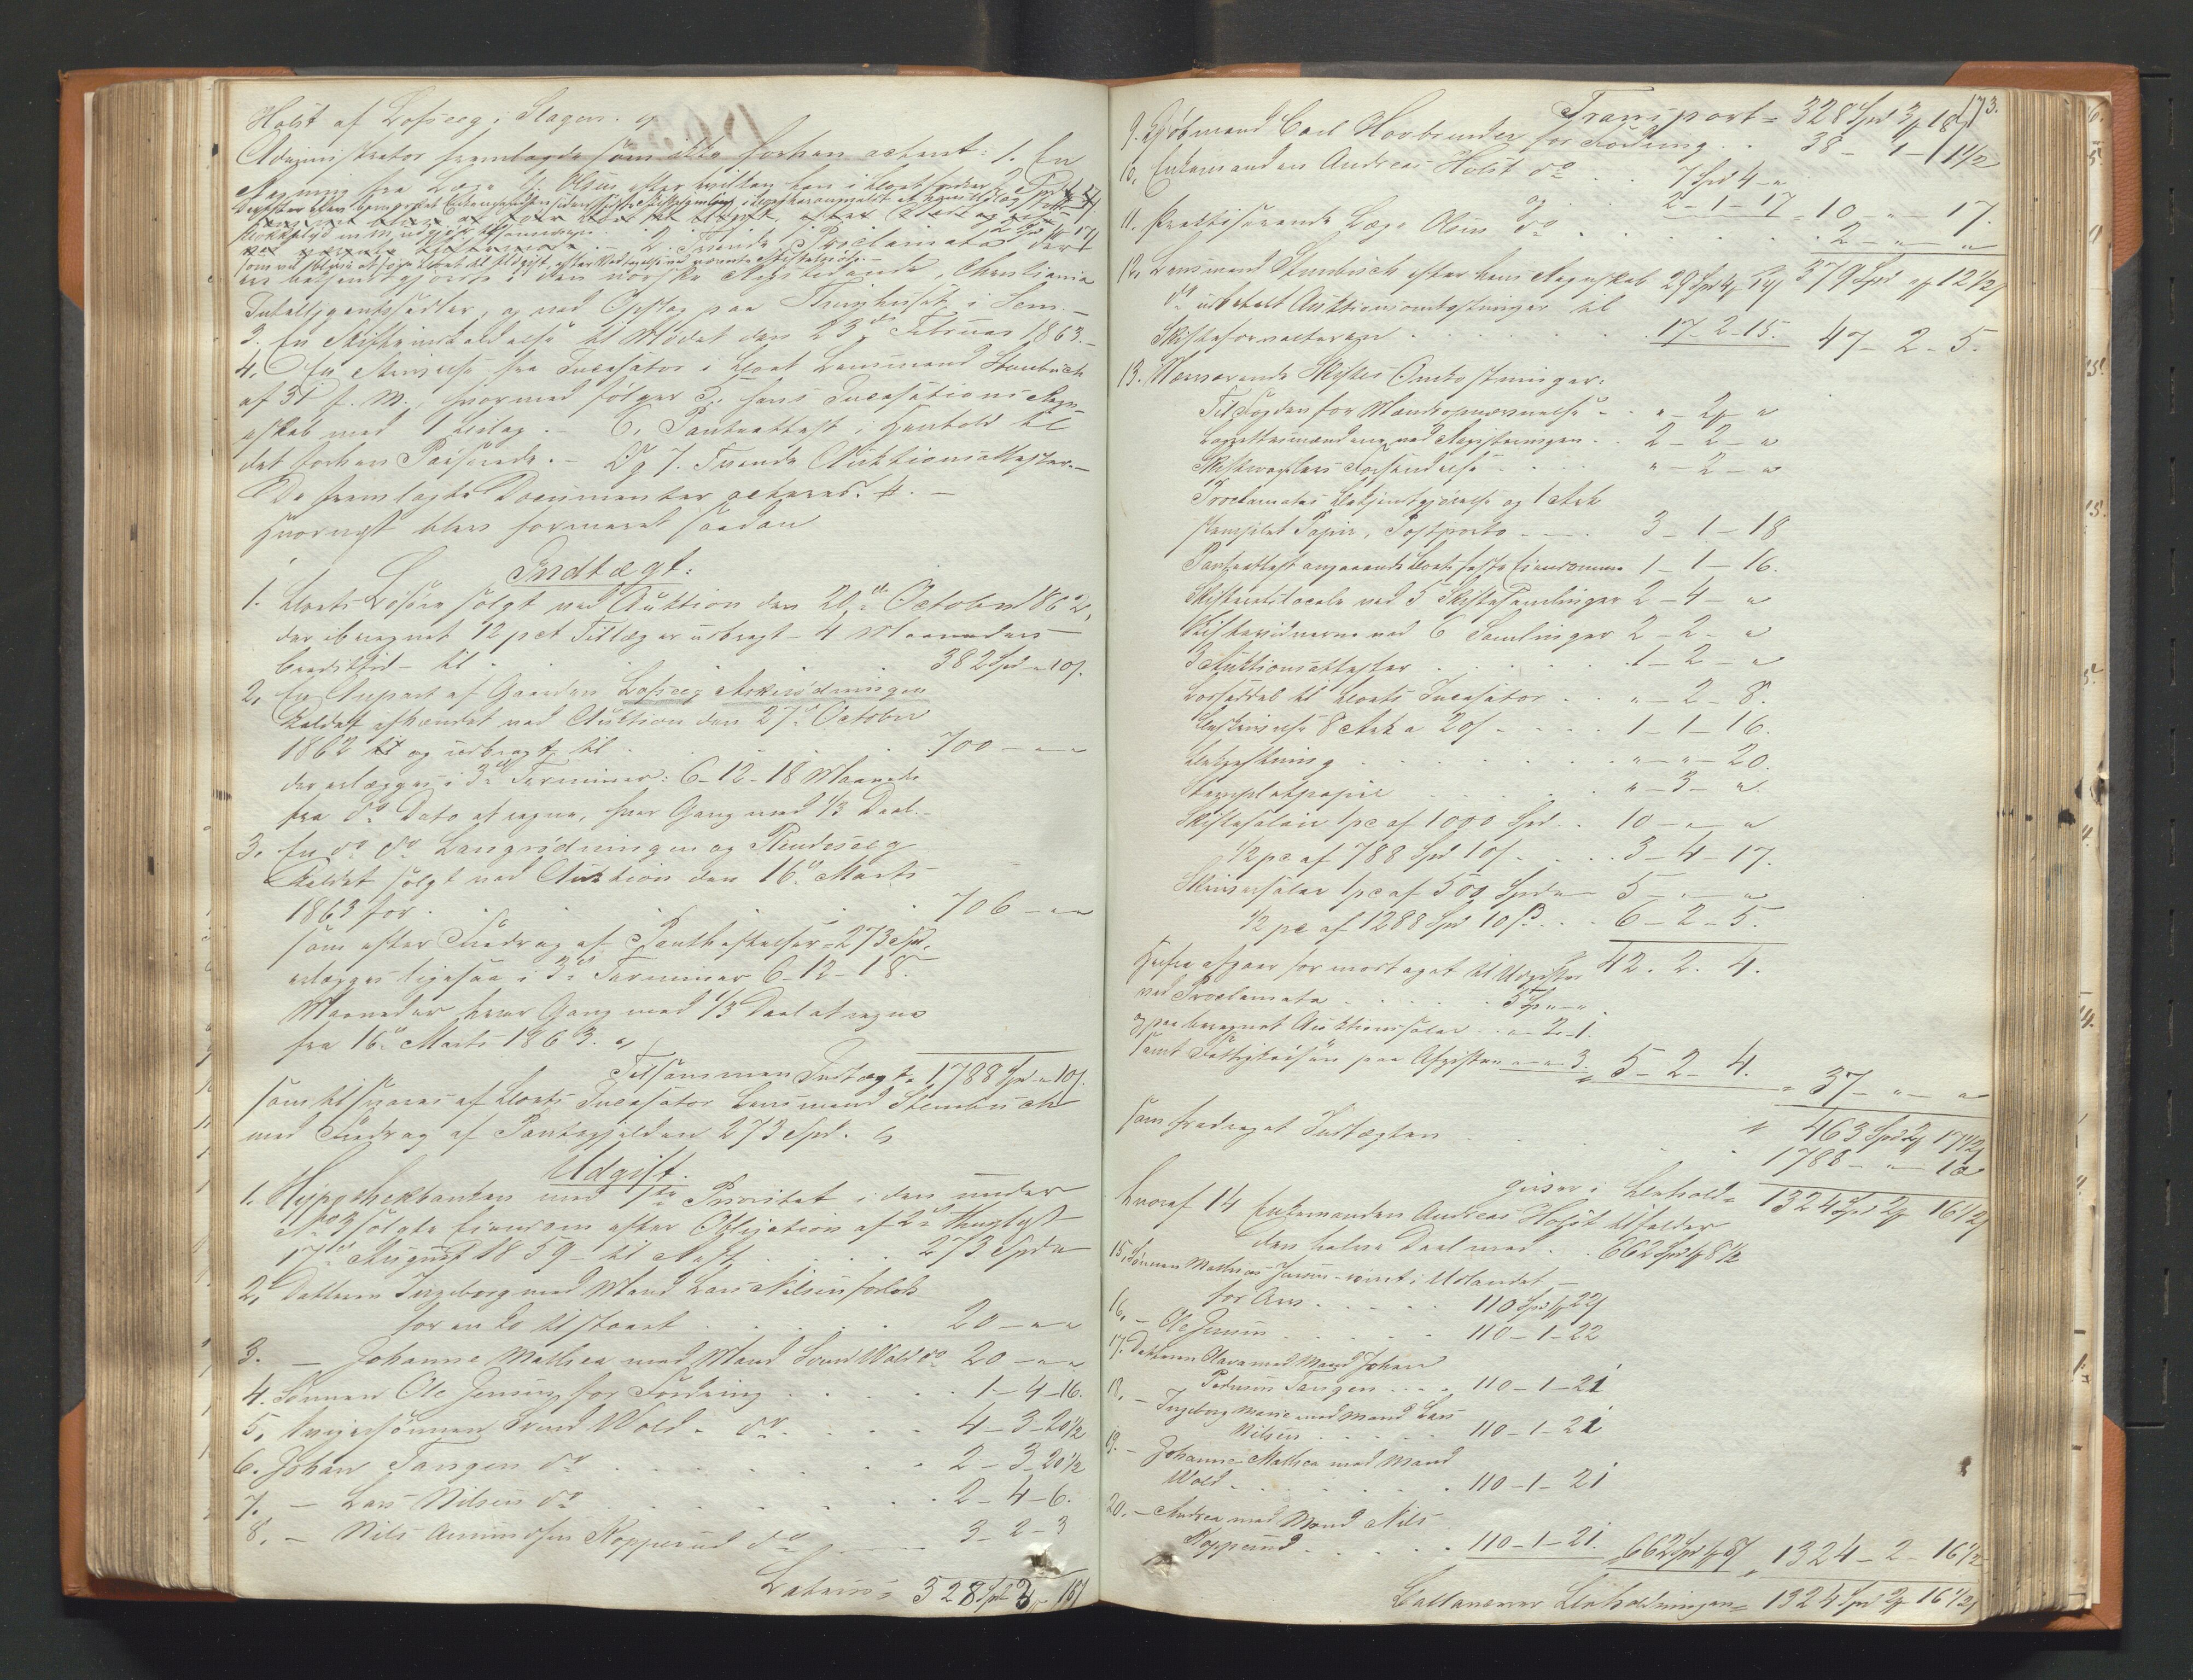 Holst af Lofseeg i Slagen. og
Administrator fremlagde som blev forhen acteret: 1. En
Regning fra Læge Olsen efter hvilken han i Boet fordrer 2 Spd
2. Trende Proclamata der
ere bekjendtgjorte i den norske Rigstidende, Christiania
Intelligentssedler, og ved Opslag paa Thinghuset i Sem.
3. En Skifteindkaldelse til Mødet den 23de Februar 1863.
4. En Skrivelse fra Incasator i Boet Lensmand Stenbuch
af 31 f. M., hvormed følger 5, hans Incasations Regn-
skab med 1 Bilag. – 6. Pantattest i Henhold til
det forhen Passerede. – Og 7. Trende Auktionsattester. –
De fremlagte Documenter acteres. –
Hvornæst blev formeret saadan
Indtægt:
1. Boets Løsøre solgt ved Auktion den 20de October 1862,
der iberegnet 12 pct Tillæg er udbragt – 4 Maaneders
Credittid – til . . . 382 Spd „ 10 s.
2. En Anpart af Gaarden Lofseeg Askerødningen
kaldet afhændet ved Auktion den 27de October
1862 og udbragt til . . . 700 – „ „
der erlægges i 3de Terminer: 6 – 12 – 18 Maaneder
fra do Dato at regne, hver Gang med 1/3 Deel. –
3. En do do Langrødningen og
kaldet solgt ved Auktion den 16de Marts
1863 for . . . 706 – „ „
som efter Fradrag af Pantheftelser = 273 Spd.
erlægges ligesaa i 3de Terminer 6 – 12 – 18.
Maaneder hver Gang med 1/3 Deel at regne
fra 16de Marts 1863.
Tilsammen Indtægt = 1788 Spd „ 10 s.
som tilsvares af Boets Incasator Lensmand Stenbuch
med Fradrag af Pantegjælden 273 Spd.
Udgift.
1. Hypothekbanken med 1ste Prioritet i den under
No 3 solgte Eiendom efter Obligation af 2den thinglyst
17de August 1859 – til Rest . . . 273 Spd „
2, Datteren Ingeborg med Mand Lars Nilsen forlods
for en Ko tilstaaet . . . 20 – „ „
3. – Johanne Mathea med Mand Svend Wold do 20 – „ „
4. Sønnen Ole Jensen for Fordring . . . 1 – 4 – 16.
5, Svigersønnen Svend Wold – do . . . 4 – 3 – 20 1/2
6. Johan Tangen do . . . 2 – 3 – 20 1/2
7. – Lars Nilsen do . . . 2 – 4 – 6.
8. – Nils Amundsen Kopperud do 3 – 2 – 3
Lateris = 328 Spd 3 – 18 s
173.
Transport = 328 Spd 3 – 18 s
9. Kjøbmand Carl Hovbrender for Fordring . . 38 – 1 – 1 1/2
10, Enkemanden Andreas Holst do . . 7 Spd 4 – „
og . . 2 – 1 – 17 = 10 – „ – 17.
11. Praktiserende Læge Olsen do . . . 2 – „ – „
379 Spd „ 12 1/2 s
12, Lensmand Stenbuch efter hans Regnskab 29 Spd 4 – 14 s
do udbetalt Auktionsomkostninger til
Skifteforvalteren . . . 17 – 2 – 15. 47 – 2 – 5.
13. Nærværende Skiftes Omkostninger:
Til Fogden for Mændsopnævnelse . . „ – 2 – „
Laugrettesmændene ved Registeringen . . 2 – 2 – „
Skifte Forkyndelse . . . „ – 2 – „
Proclamatas Bekjendtgjørelse og 1 Ark
stemplet Papir, Postporto . . . 3 – 1 – 18
Pantattest angaaende Boets faste Eiendomme 1 – 1 – 16.
Skifteretslocale ved 5 Skiftesamlinger 2 – 4 – „
Skiftevidnerne ved 6 Samlinger 2 – 2 – „
3 Auktionsattester . . . 1 – 2 – „
til Boets Incasator . . „ – 2 – 8.
Beskrivelse 8 Ark a 20 s . . . 1 – 1 – 16.
. . . „ – „ – 20.
Stempletpapir . . . „ – 3 – „
Skiftesalair 1 pc af 1000 Spd . . 10 – „ – „
1/2 pc af 788 Spd 10 s . . . 3 – 4 – 17.
Skriversalær 1 pc af 500 Spd . . 5 – „ – „
1/2 pc af 1288 Spd 10 s . . 6 – 2 – 5.
42. 2. 4.
Herfra afgaar formodtaget til Udgifter
ved Proclamata . . . 5 Sp „ – „
og paa beregnet Auktionssalær . . „ – 2 – 1.
samt paa Afgiften „ „ 3. = 5 – 2 – 4.
= 37 – „ – „
463 Spd 2 – 17 1/2 s
som fradraget Indtægten . . . 1788 – „ – 10
giver i Behold = 1324 Spd 2 – 16 1/2 s
hvoraf 14 Enkemanden Andreas Holst tilfalder
den halve Deel med . . 662 Spd 1 – 8 1/2
15, Sønnen Mathias Jensen – reist i Udlandet –
for Arv . . . 110 Spd 1 – 22 s
16, – Ole Jensen . . . 110 – 1 – 22
17. Datteren Olava med Mand Johan
Pedersen Tangen . . . 110 – 1 – 21
18, – Ingeborg Marie med Mand Lars
Nilsen . . . 110 – 1 – 21
19. – Johanne Mathea med Mand
Wold . . . 110 – 1 – 21
20. – Andrea med Mand Nils
Kopperud . . . 110 – 1 – 21. 662 Spd 1 – 8 s 1324 – 2 – 16 1/2
Ballancerer Beholdningen = 1324 Spd 2 – 16 1/2 s